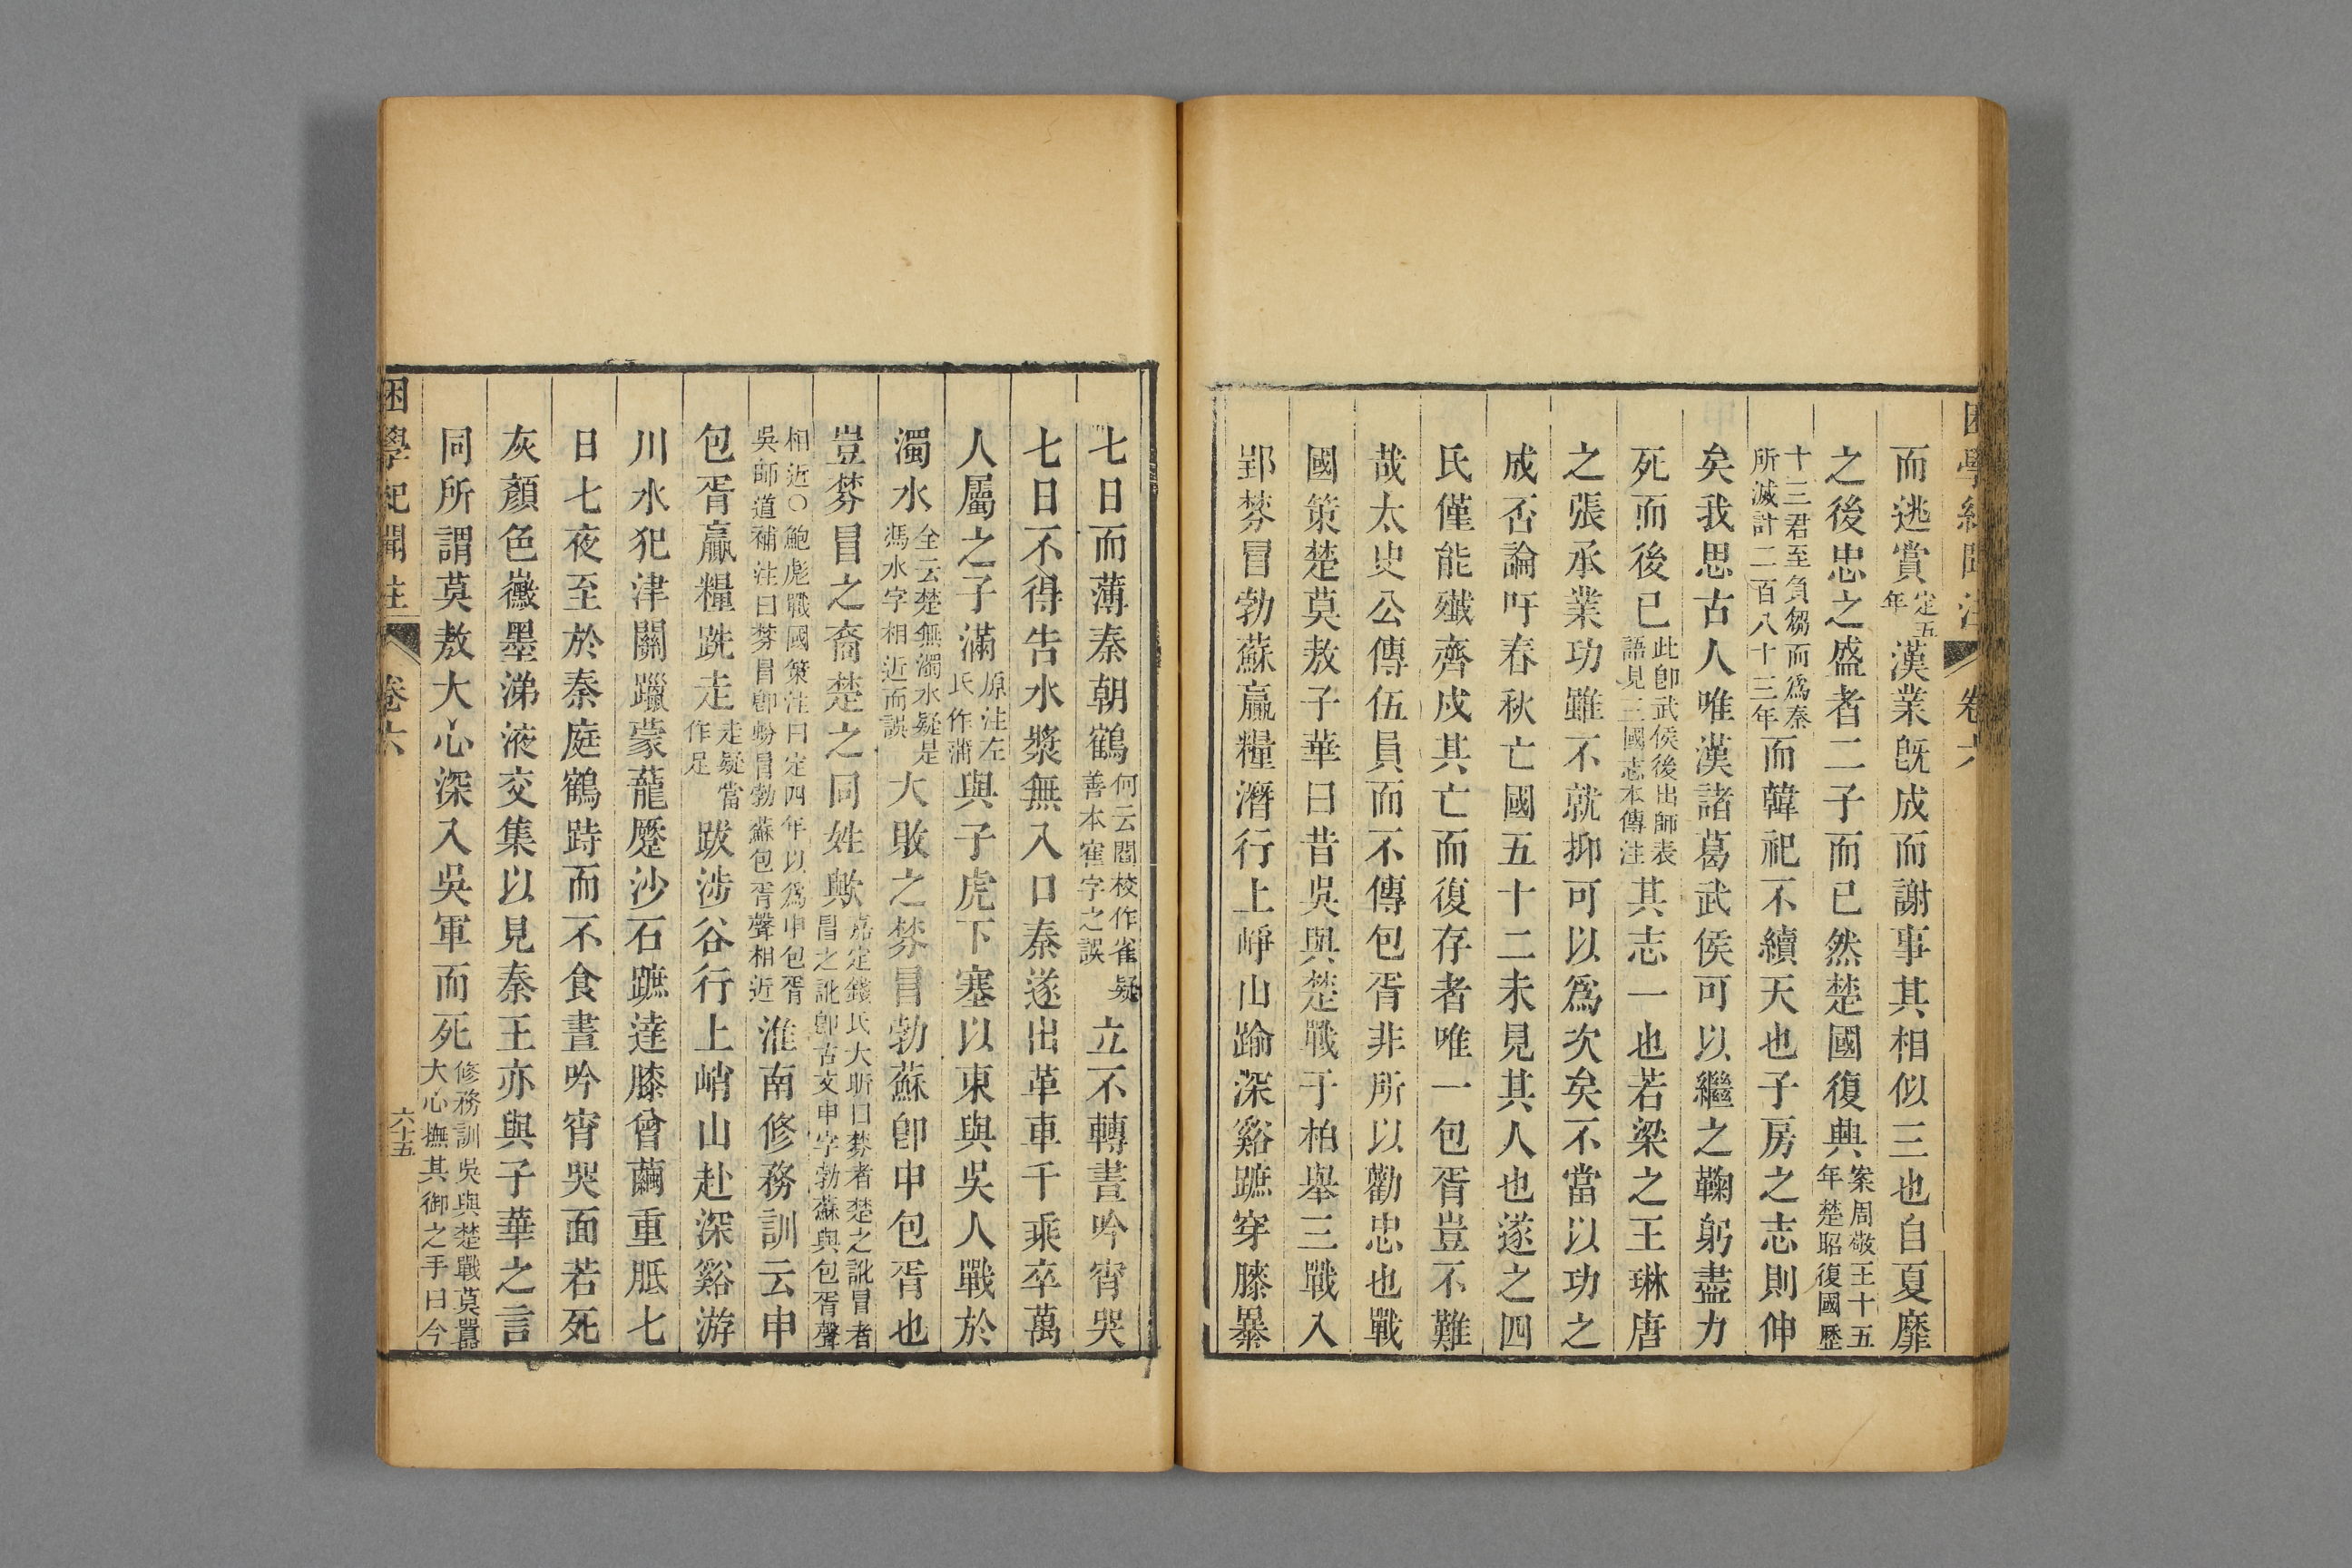 困學紀聞注 卷六
而逃賞定五年漢業旣成而謝事其相似三也自夏靡
之後忠之盛者二子而已然楚國復興案周敬王十五年楚昭復國歷
十三君至負芻而爲秦所滅計二百八十三年而韓祀不續天也子房之志則伸
矣我思古人唯漢諸葛武侯可以繼之鞠躬盡力
死而後已此卽武侯後出師表語見三國志本傳注其志一也若梁之王琳唐
之張承業功雖不就抑可以爲次矣不當以功之
成否論吁春秋亡國五十二未見其人也遂之四
氏僅能殲齊戍其亡而復存者唯一包胥豈不難
哉太史公傳伍員而不傳包胥非所以勸忠也戰
國策楚莫敖子華曰昔吳與楚戰于柏舉三戰入
郢棼冒勃蘇贏糧潛行上崢山踰深谿蹠穿膝暴
七日而薄秦朝鶴何云閻校作雀疑善本寉字之誤立不轉晝吟宵哭
七日不得告水漿無入口秦遂出革車千乘卒萬
人屬之子滿原注左氏作蒲與子虎下塞以東與吳人戰於
濁水全云楚無濁水疑是馮水字相近而誤大敗之棼冒勃蘇卽申包胥也
豈棼冒之裔楚之同姓歟嘉定錢氏大昕曰棼者楚之訛冒者冒之訛卽古文申字勃蘇與包胥聲
相近○鮑彪戰國策注曰定四年以爲申包胥吳師道補注曰棼冒卽蚡冒勃蘇包胥聲相近淮南修務訓云申
包胥贏糧跣走走疑當作足跋涉谷行上峭山赴深谿游
川水犯津關躐蒙蘢蹷沙石蹠達膝曾繭重胝七
日七夜至於秦庭鶴跱而不食晝吟宵哭面若死
灰顏色黴墨涕液交集以見秦王亦與子華之言
同所謂莫敖大心深入吳軍而死修務訓吳與楚戰莫囂大心撫其御之手曰今
困學紀聞注 卷六 六十五